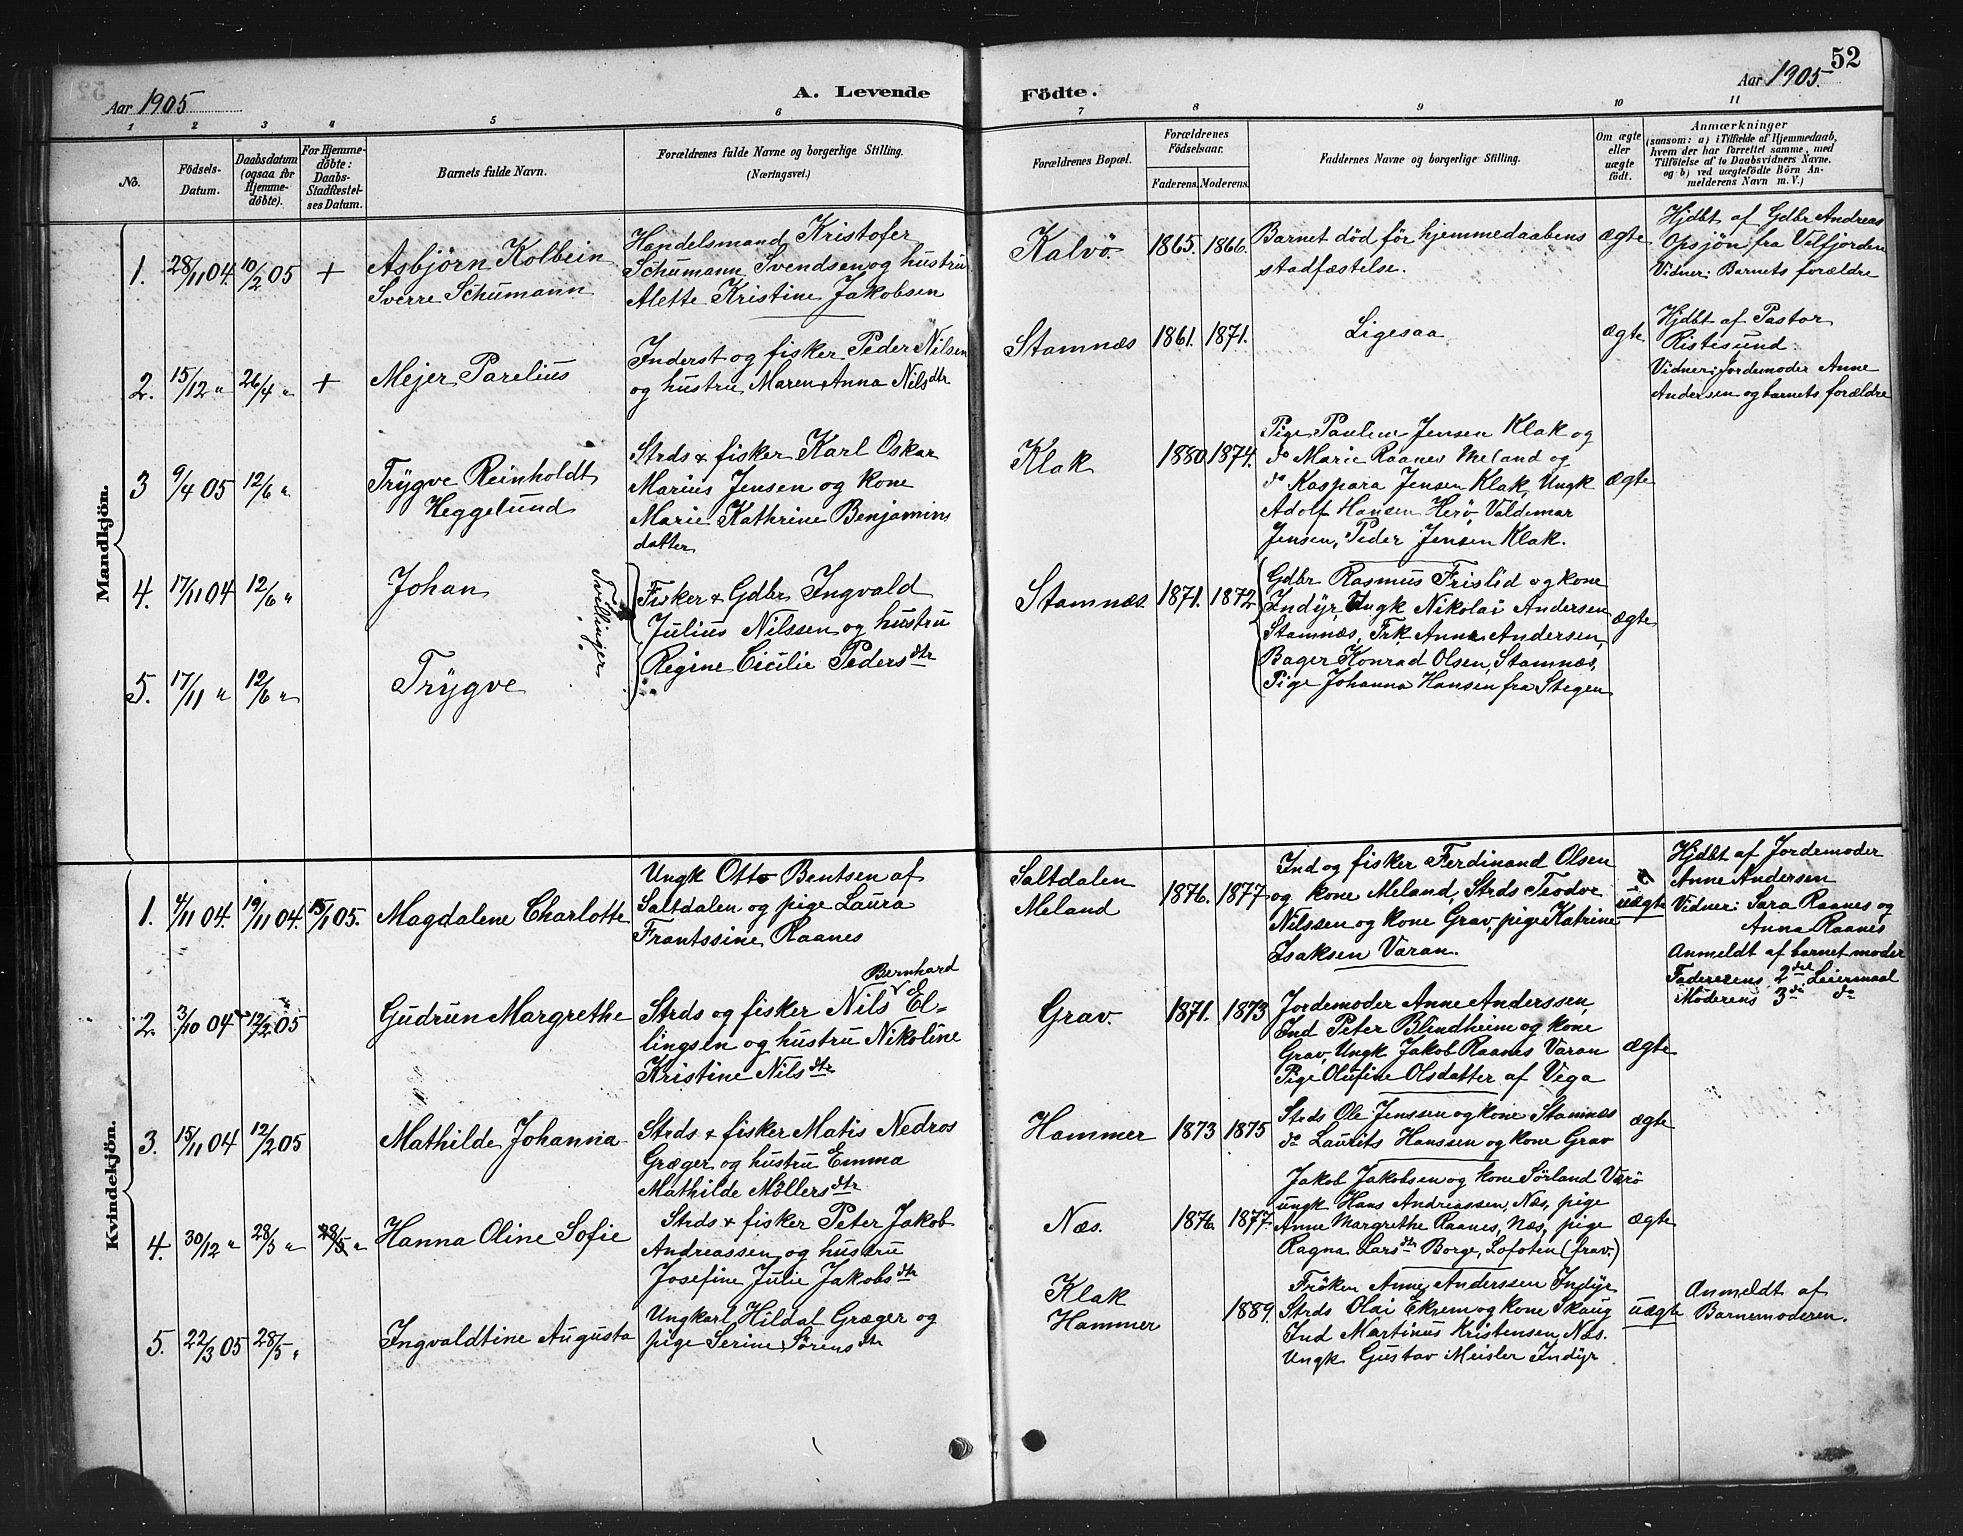 52
Aar 1905
A. Levende
Födte.
Aar 1905.
1 2 3 4 5 6 7 8 9 10 11
No.
Födsels-Datum.
Daabsdatum (ogsaa for Hjemmedöbte).
For Hjemmedöbte: Daabs-Stadfæstelses Datum.
Barnets fulde Navn.
Forældrenes fulde Navne og borgerlige Stilling.
(Næringsvei.)
Forældrenes Bopæl.
Forældrenes Födselsaar.
Faderens. Moderens.
Faddernes Navne og borgerlige Stilling.
Om ægte eller uægte födt.
Anmærkninger
(saasom: a) i Tilfælde af Hjemmedaab,
hvem der har forrettet samme, med
Tilföielse af to Daabsvidners Navne,
og b) ved uægtefödte Börn Anmelderens Navn m. V.)
Mandkjön.
1. 28/11 04. 10/2 05 +
Asbjörn Kolbein
Sverre Schumann
Handelsmand Kristofer
Schumann Svendsen og hustru
Alette Kristine Jakobsen
Kalvö. 1865. 1866.
Barnet död för hjemmedaabens
stadfæstelse.
ægte
Hjdbt af Gdbr Andreas
Opsjön fra Velfjorden
Vidner: Barnets forældre
2. 15/12 " 26/4 " +
Mejer Parelius
Inderst og fisker Peder Nilsen
og hustru Maren Anna Nilsdtr
Stamnæs 1861. 1871.
Ligesaa
ægte
Hjdbt af Pastor
Ristesund.
Vidner: Jordemoder Anne
Andersen og barnets forældre
3 9/4 05 12/6 "
Trÿgve Reinholdt
Heggelund
Strds & fisker Karl Oskar
Marius Jensen og kone
Marie Kathrine Benjamins
datter
Klak 1880 1874.
Pige Pauline Jensen Klak og
do Marie Raanes Meland og
do Kaspara Jensen Klak, Ungk
Adolf Hansen Herö, Valdemar
Jensen, Peder Jensen Klak.
ægte
4. 17/11 04 12/6 "
Johan
Tvillinger
Fisker & Gdbr Ingvald
Julius Nilssen og hustru
Regine Cicilie Pedersdtr
Stamnæs 1871. 1872
Gdbr Rasmus Frislid og kone
Indÿr, Ungk Nikolai Andersen
Stamnæs, Frk Anna Andersen,
Bager Konrad Olsen, Stamnæs,
Pige Johanna Hansen fra Stegen
ægte
5. 17/11 " 12/6 "
Trÿgve
Kvindekjön.
1. 4/11 04. 19/11 04. 15/1 05.
Magdalene Charlotte
Ungk Otto Bentsen af
Saltdalen og pige Laura
Frantssine Raanes
Saltdalen
Meland
1876. 1877
Ind og fisker Ferdinand Olsen
og kone Meland, Strds Teodor
Nilssen og kone Grav, pige Katrine
Isaksen Varan.
uægte
Hjdbt af Jordemoder
Anne Andersen
Vidner: Sara Raanes og
Anna Raanes
Anmeldt af barnet moder
Faderens 2det Leiermaal
Moderens 3die do
2. 3/10 04 12/2 05
Gudrun Margrethe
Bernhard
Strds og fisker Nils El-
lingsen og hustru Nikoline
Kristine Nilsdtr
Grav. 1871. 1873
Jordemoder Anne Anderssen,
Ind Peter Blindheim og kone
Grav, Ungk Jakob Raanes Varan
Pige Olufine Olsdatter af Vega
ægte
3. 15/11 04 12/2 05
Mathilde Johanna
Strds & fisker Matis Nedros
Græger og hustru Emma
Mathilde Möllersdtr
Hammer 1873 1875
Strds Ole Jenssen og kone Stamnæs
do Laurits Hanssen og kone Grav
ægte
4. 30/12 " 28/3 " 28/5 "
Hanna Oline Sofie
Strds & fisker Peter Jakob
Andreassen og hustru
Josefine Julie Jakobsdtr
Næs. 1876. 1877
Jakob Jakobsen og kone Sörland Værö
ungk Hans Andreassen, Næs, pige
Anne Margrethe Raanes, Næs, pige
Ragna Larsdtr Borge, Lofoten (frav.)
ægte
5. 22/3 05 28/5 "
Ingvaldtine Augusta
Ungkarl Hildal Græger og
pige Serine Sörensdtr
Klak
Hammer
1889.
Fröken Anne Anderssen Indÿr
Strds Olai Ekrem og kone Skaug
Ind Martinus Kristensen, Næs.
Ungk Gustav Meisler Indÿr
uægte
Anmeldt af
Barnemoderen.